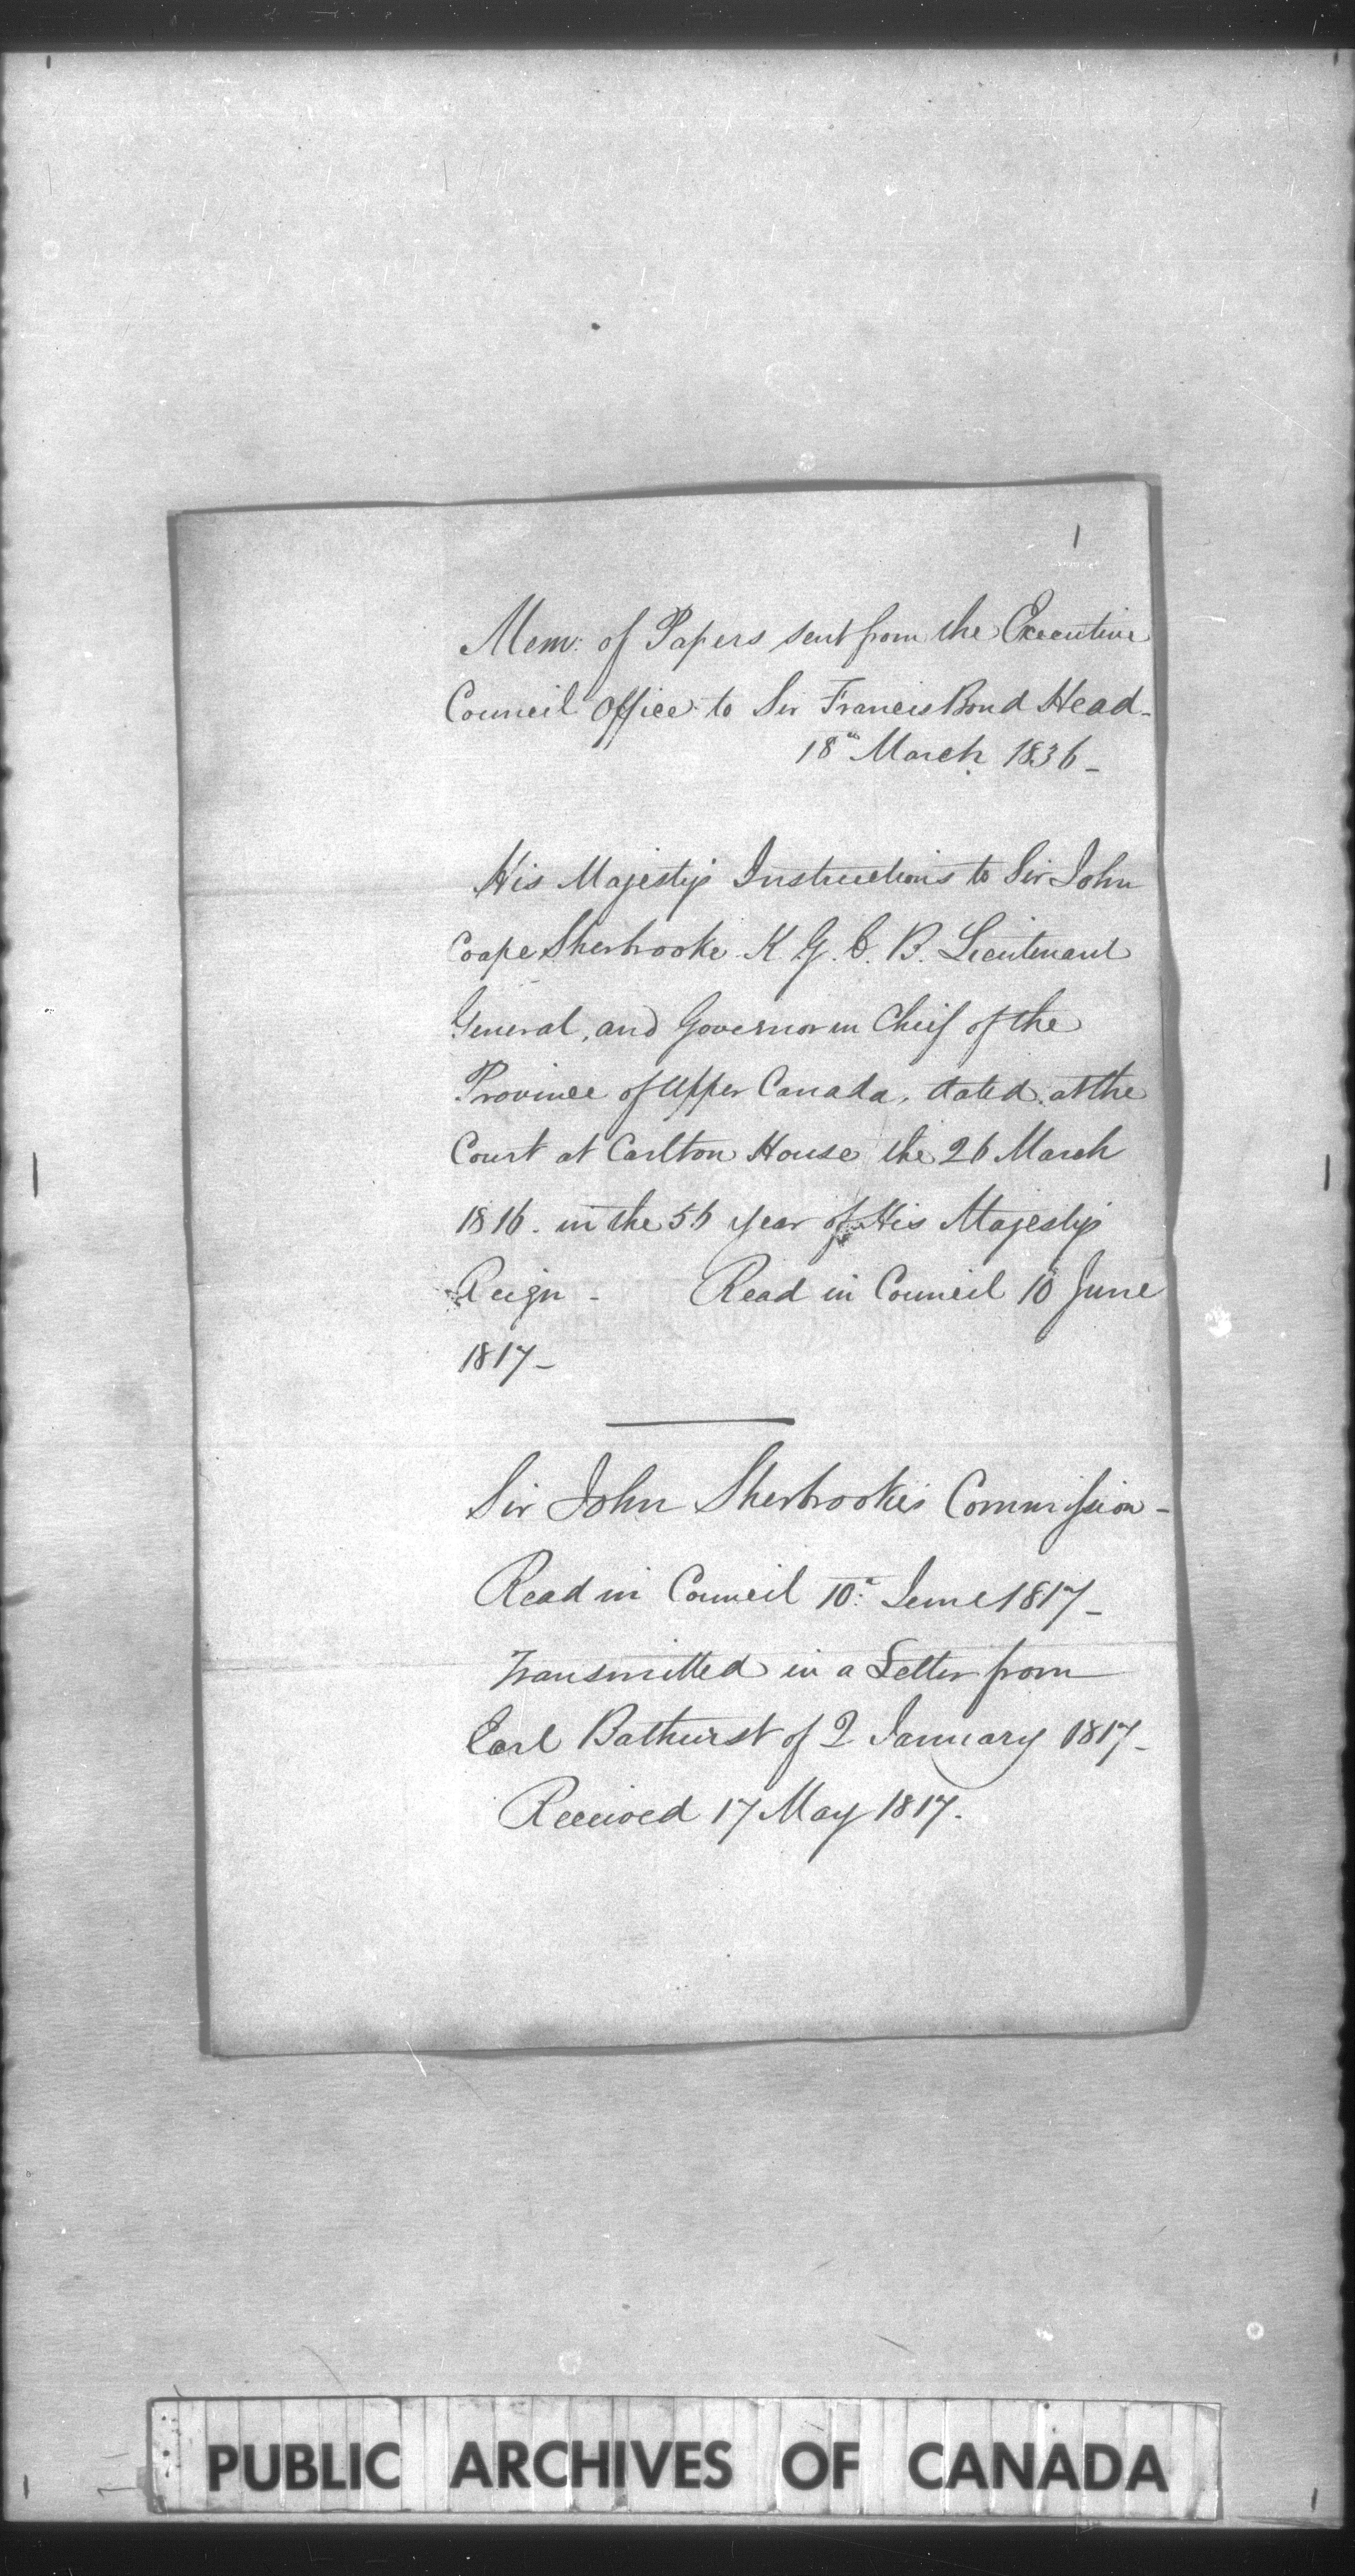 1
Mem: of Papers sent from the Executive
Council Office to Sir Francis Bond Head-
18th March 1836-
His Majesty's Instructions to Sir John
Coape Sherbrooke K. G. C. B. Lieutenant
General, and Governor in Chief of the
Province of Upper Canada, dated at the
Court at Carlton House the 26 March
1816. in the 56 year of His Majesty's
Reign - Read in Council 10 June
1817-
Sir John Sherbrooke's Commission-
Read in Council 10th June 1817-
Transmitted in a Letter from
Earl Bathurst of 2 January 1817-
Received 17 May 1817.
PUBLIC ARCHIVES OF CANADA